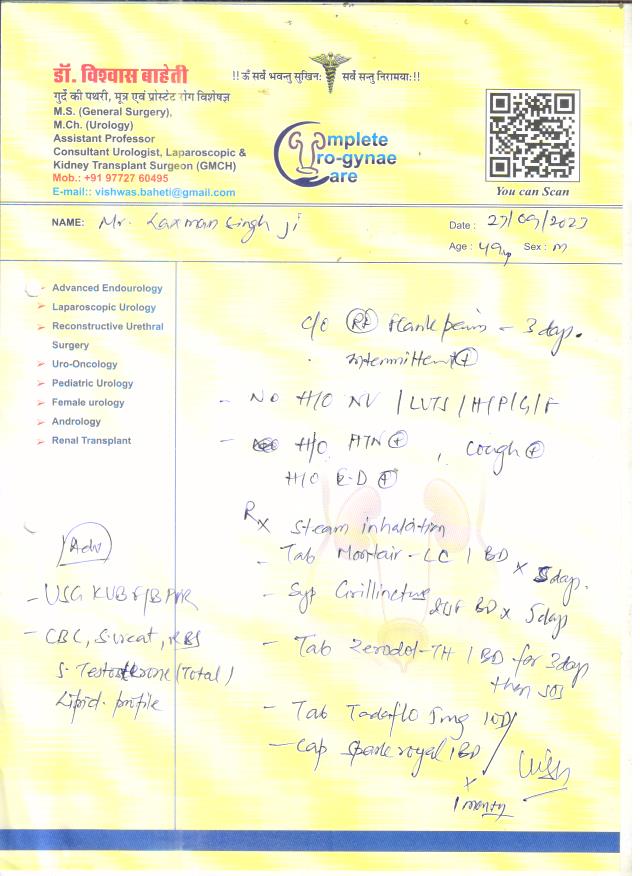 डॉ. विश्वास बाहेती
गुर्दे की पथरी, मूत्र एवं प्रोस्टेट रोग विशेषज्ञ
M.S. (General Surgery),
M.Ch. (Urology)
Assistant Professor
Consultant Urologist, Laparoscopic &
Kidney Transplant Surgeon (GMCH)
Mob.: +91 97727 60495
E-mail:: vishwas.baheti@gmail.com
!! ऊँ सर्वे भवन्तु सुखिनः सर्वे सन्तु निरामयाः !!
Complete
Uro-gynae
Care
You can Scan
NAME: Mr. Laxman Singh Ji
Date : 27/09/2023
Age : 49y Sex : M
Advanced Endourology
Laparoscopic Urology
Reconstructive Urethral
Surgery
Uro-Oncology
Pediatric Urology
Female urology
Andrology
Renal Transplant
C/o Rt Flank pain - 3 days.
intermittent +
- No H/O NV / LUTS / H/P/G/F
- H/O HTN + , Cough +
H/O E.D +
Rx Steam inhalation
- Tab Montair-LC 1 BD x 5 days.
- Syp Grilinctus BD x 5 days
- Tab Zerodol-TH 1 BD for 3 days
then SOS
- Tab Tadaflo 5mg 1OD
- Cap Spark royal 1BD
x
1 month
Adv
- USG KUB
- CBC, S. creat, RBS
S. Testosterone (Total)
Lipid profile